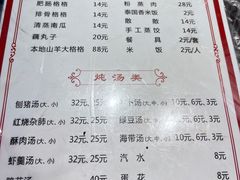 肥肠格格 14元 粉蒸肉 28元
排骨格格 14元 泰国香米饭 2元
清蒸南瓜 14元 散散 14元
藕丸子 20元 手工蒸饺 14元
本地山羊大格格 88元 餐具 2元/套
米饭 2元/人
炖汤类
刨猪汤(大.小) 32元, 25元 汤(大.小) 10元, 6元, 3元
红烧杂肺(大.小) 32元, 25元 绿豆汤(大.小) 10元, 6元, 3元
酥肉汤(大.小) 32元, 25元 海带汤(大.小) 10元, 6元, 3元
虾羹汤(大.小) 32元, 25元 汽水 8元
40元 蛋花 8元